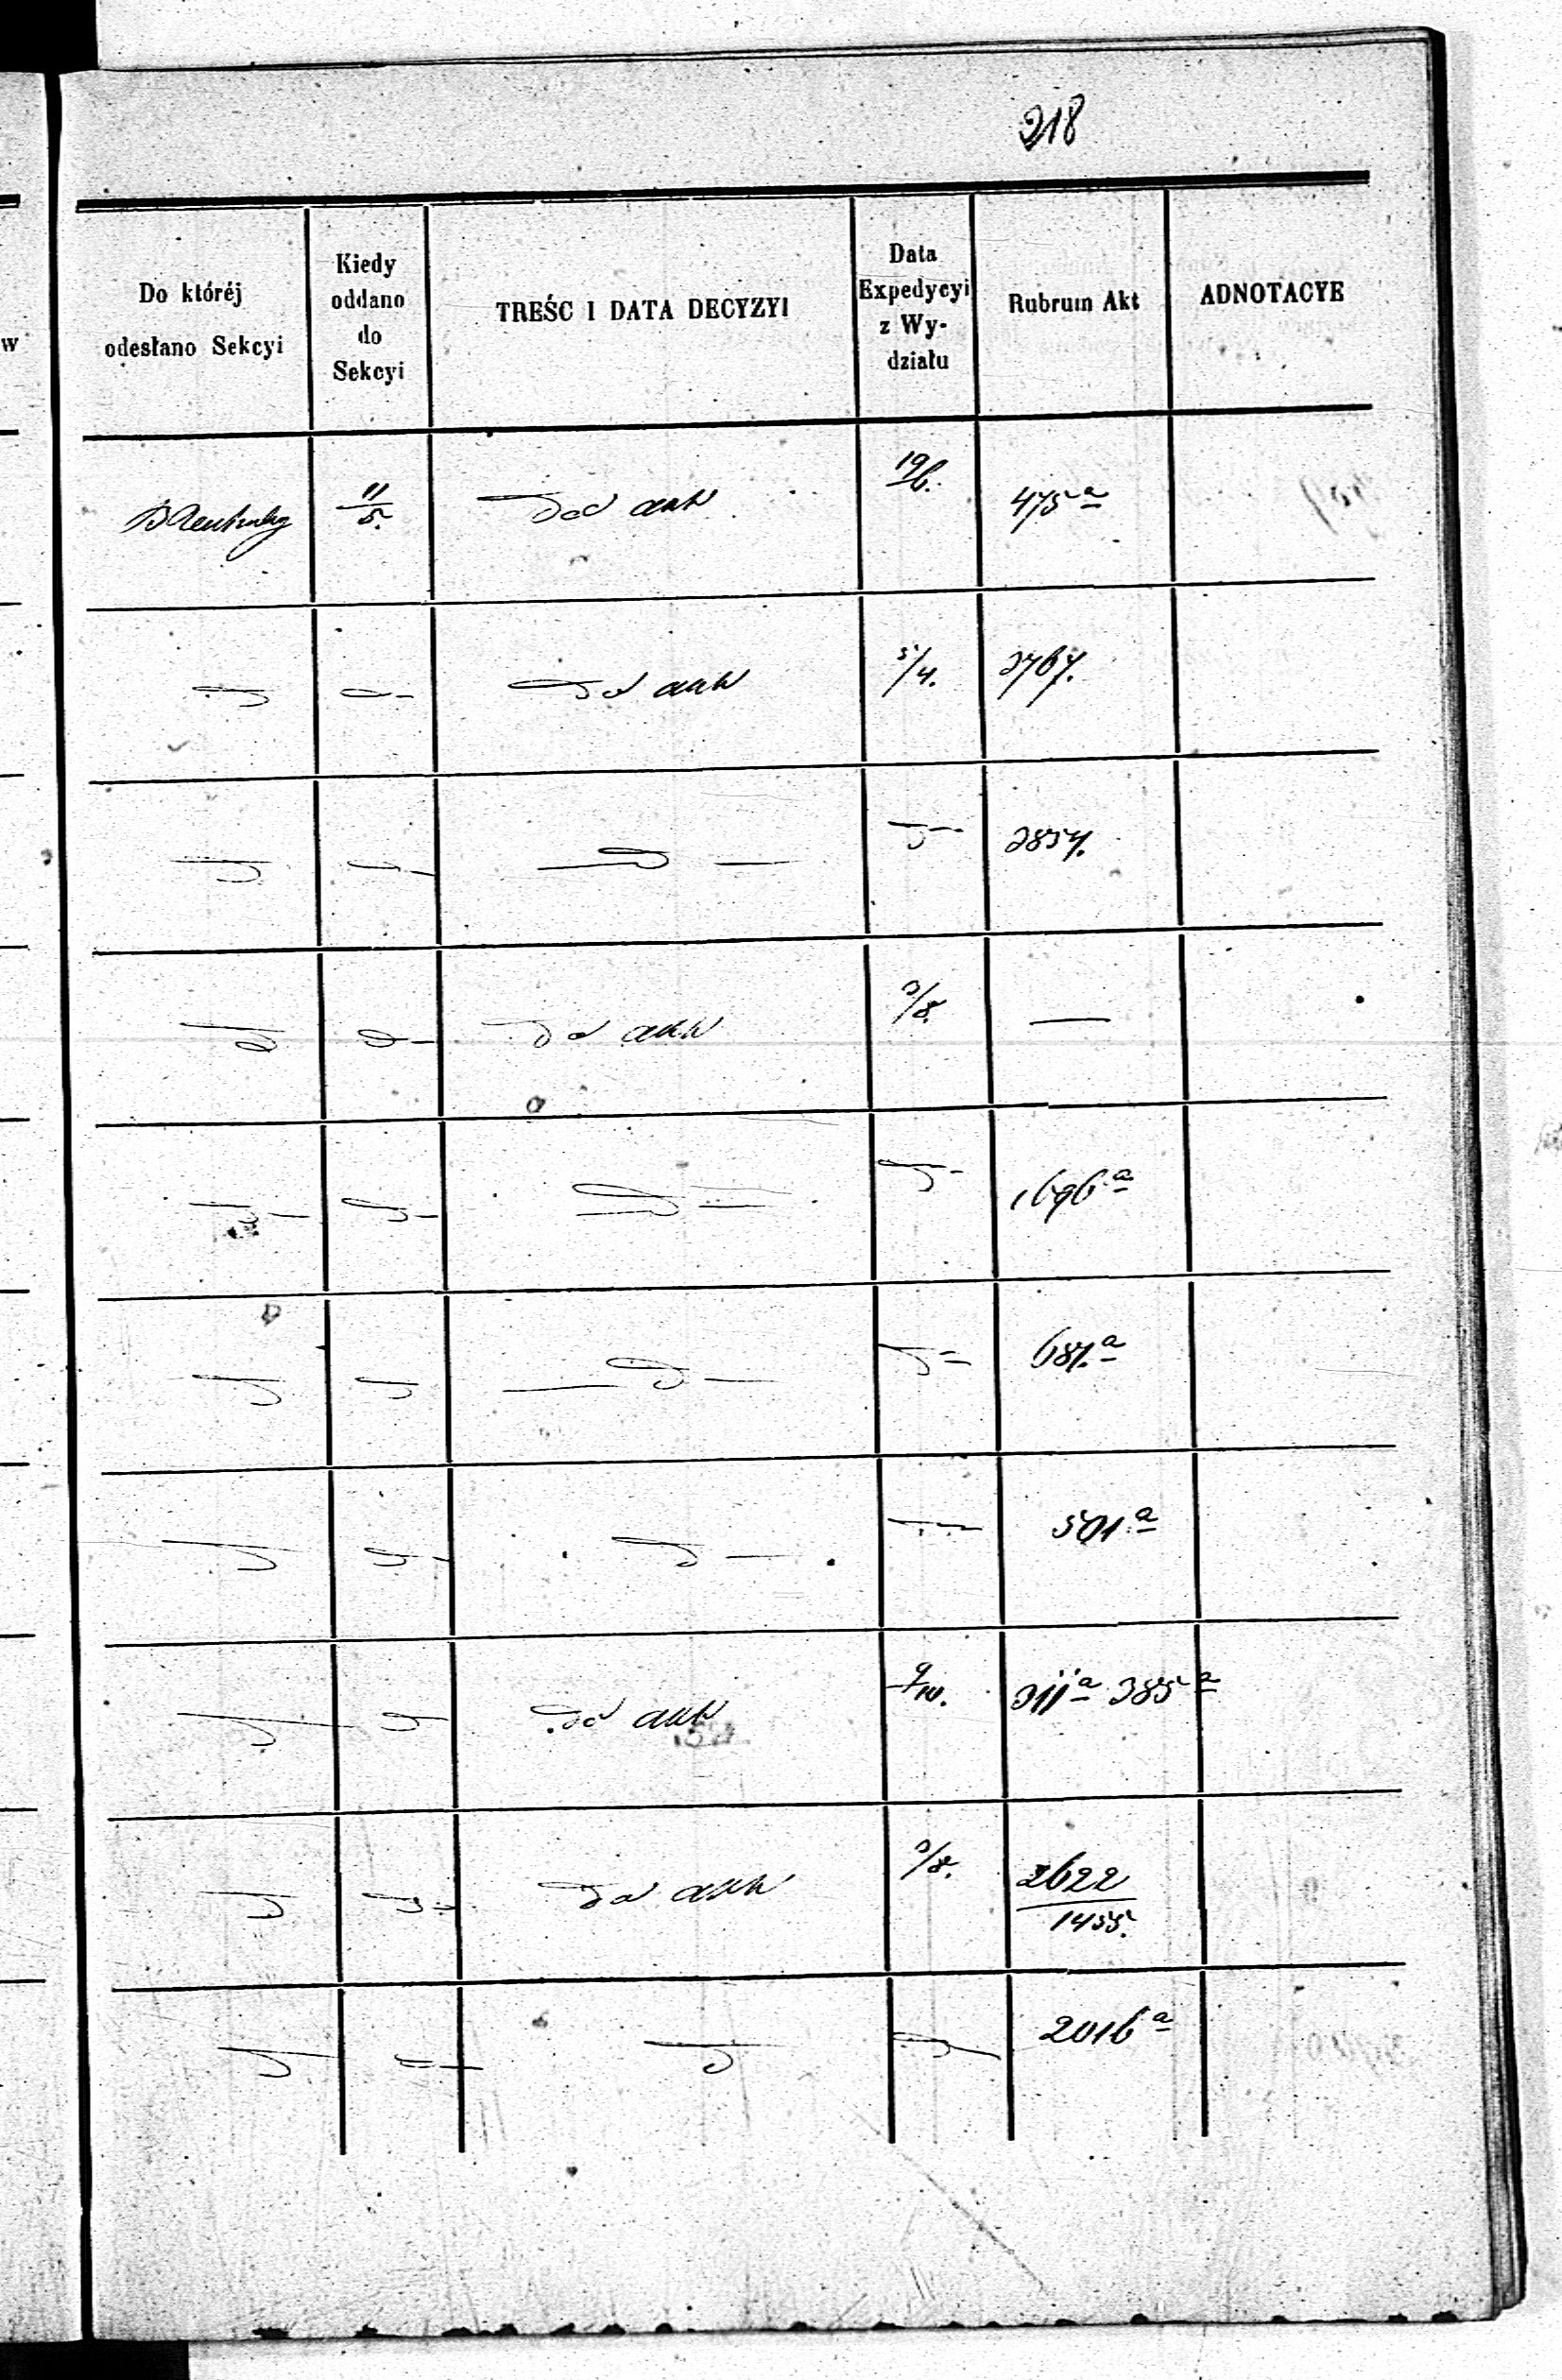 218
Do któréj
odesłano Sekcyi
Kiedy
oddano
do
Sekcyi
TREŚC I DATA DECYZYI
Data
Expedycyi
z Wy-
działu
Rubrum Akt
ADNOTACYE
11/5. Do akt 19/6. 475 a
Do akt 5/4. 2767.
2857.
Do akt 3/8. —
1696 a
687. a
501. a
Do akt 9/10. 311 a 385 a
Do akt 3/8. 2622
1455.
2016 a
w